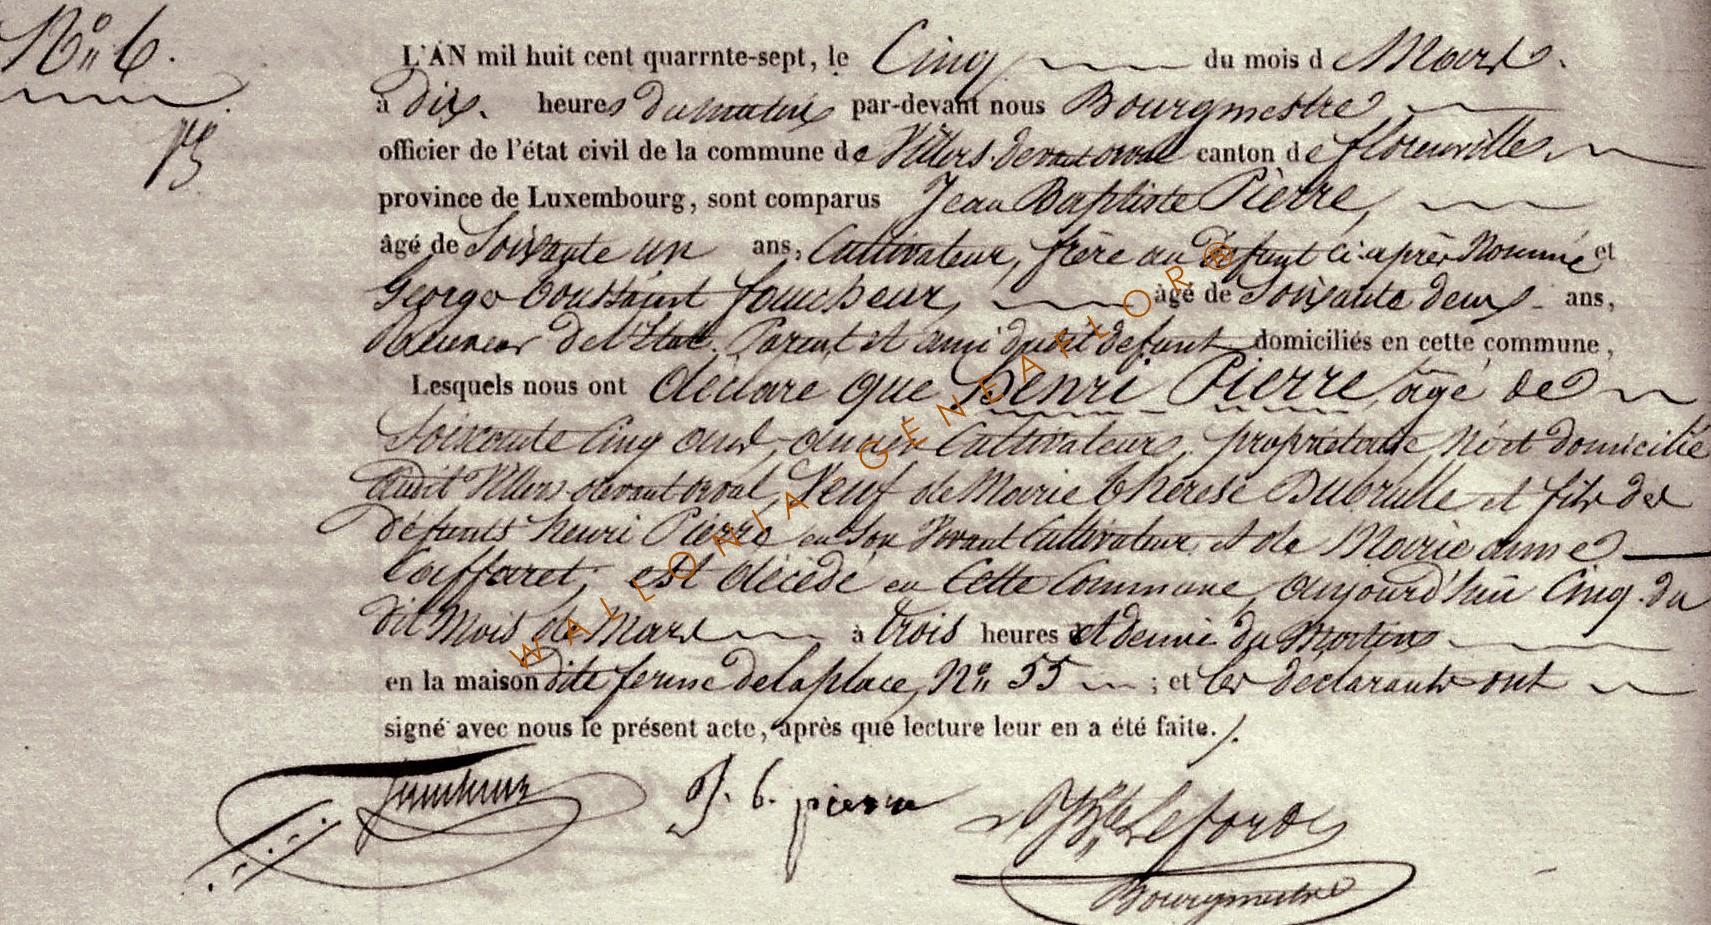 Nº 6.
L'AN mil huit cent quarrnte-sept, le Cinq du mois de Mars.
à dix. heures du matin par-devant nous Bourgmestre
officier de l'état civil de la commune de Villers-devant orval canton de florenville
province de Luxembourg, sont comparus Jean Baptiste Pierre,
âgé de Soixante un ans, Cultivateur, frère au Défunt ci-après Nommé et
George Toussaint faucheur, âgé de Soixante deux ans,
de l'Etat. Parent et ami dudit défunt domiciliés en cette commune,
Lesquels nous ont déclaré que Henri Pierre, âgé de
Soixante Cinq ans, Cultivateur, propriétaire Né et domicilié
audit Villers-devant orval, Veuf de Marie thérèse Dubrulle et fils des
défunts henri Pierre en son Vivant Cultivateur, et de Marie anne
Caffaret, est décédé en Cette Commune, aujourd'hui Cinq du
dit Mois de Mars à trois heures et demie du Matin
en la maison dite ferme de la place, Nº 55 ; et les déclarants ont
signé avec nous le présent acte, après que lecture leur en a été faite./.
faucheur J. b. pierre Lefort
Bourgmestre
WALLONIA-GÉNÉAFLOR®